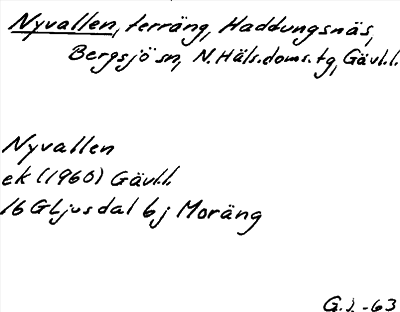 Nyvallen, terräng, Haddungsnäs,
Bergsjö sn, N. Häls. doms. tg, Gävl.l.
Nyvallen
ek (1960) Gävl.l.
16 G Ljusdal 6j Moräng
G.J. -63